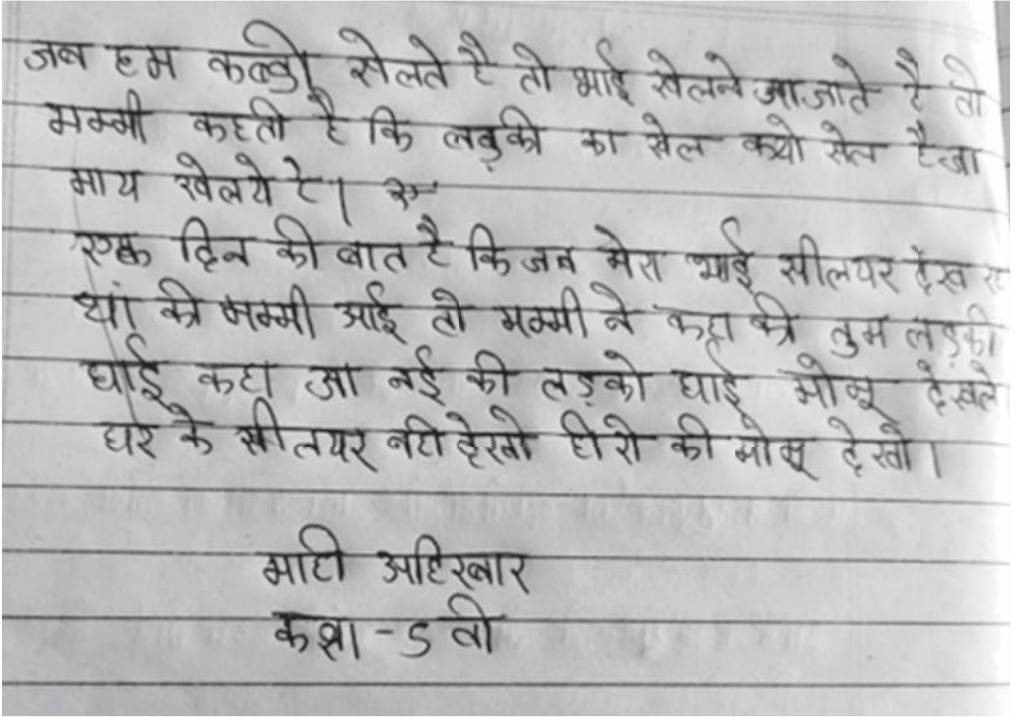 जब हम कब्डी खेलते है तो भाई खेलने आ जाते है तो
मम्मी कहती है कि लडकी का खेल क्यो खेल है जा
माय खेलये है।
एक दिन की बात है कि जब मेरा भाई सीलयर देख
था की मम्मी आई तो मम्मी ने कहा की तुम लड़की
घाई कहा आ नई की लड़को घाई मोबू देखले
घर के सीलयर नही देखो हीरो की मोबू देखो।
माही अहिरवार
कक्षा - 5 वी